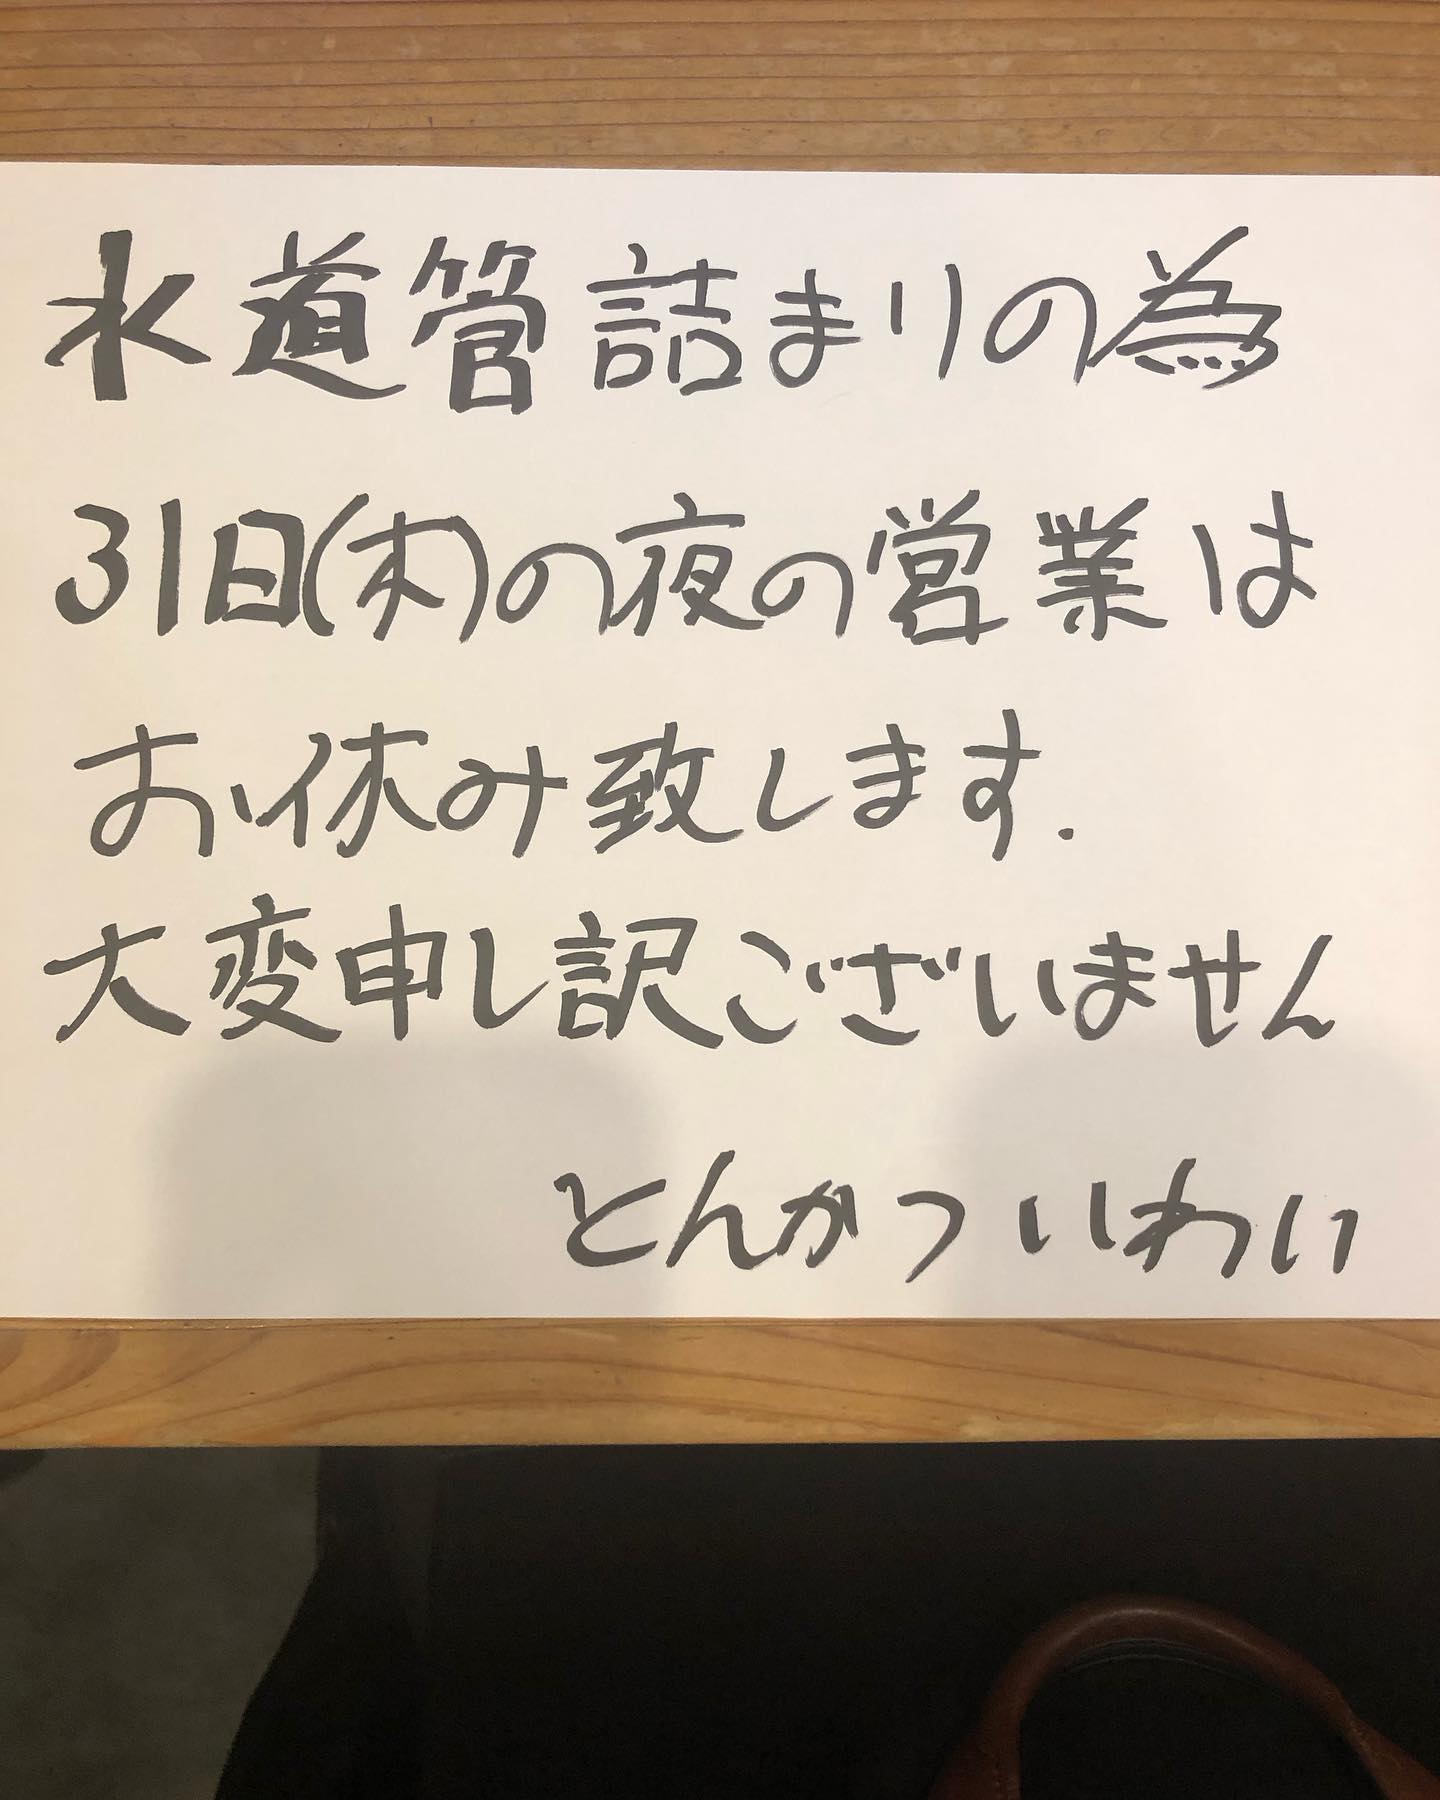 水道管詰まりの為
31日(木)の夜の営業は
お休み致します.
大変申し訳ございません
とんかつ いわい